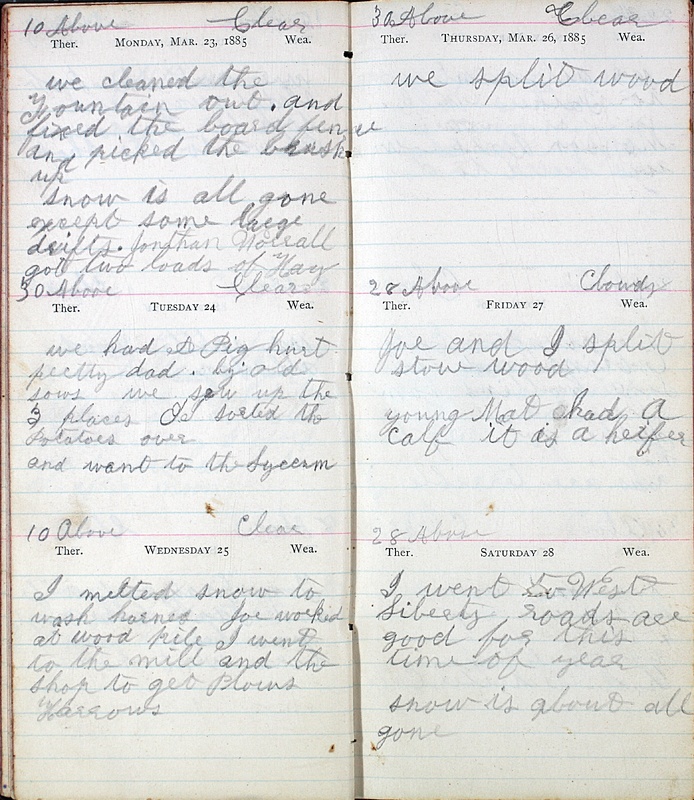 10 Above Clear
Ther. MONDAY, MAR. 23, 1885 Wea.
we cleaned the
Fountain out . and
fixed the board fence
and picked the brush
up
snow is all gone
except some large
drifts. Jonathan Worrall
got two loads of Hay
30 Above Clear
Ther. TUESDAY 24 Wea.
we had a Pig hurt
pretty dad . by old
sows we sew up the
3 places I sorted the
Potatoes over
and went to the Lyceum
10 Above Clear
Ther. WEDNESDAY 25 Wea.
I melted snow to
wash harnes Joe worked
at wood pile I went
to the mill and the
shop to get Plows
Harrows
30 Above Clear
Ther. THURSDAY, MAR. 26, 1885 Wea.
we split wood
28 Above Cloudy
Ther. FRIDAY 27 Wea.
Joe and I split
stow wood
young Mat had a
Calf it is a heifer
28 Above
Ther. SATURDAY 28 Wea.
I went to West
Liberty roads are
good for this
time of year
snow is about all
gone